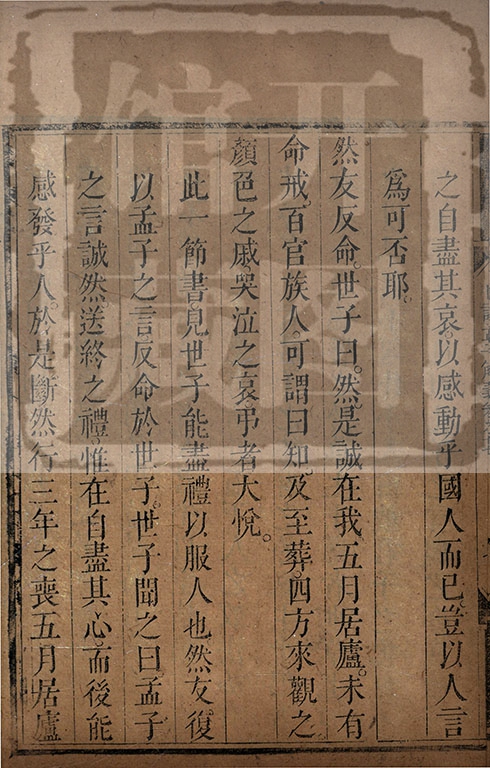 之自盡其哀以感動乎國人而已豈以人言
爲可否耶。
然友反命。世子曰。然。是誠在我。五月居廬。未有
命戒。百官族人可謂曰知。及至葬。四方來觀之
顏色之戚。哭泣之哀。弔者大悅。
此一節書見世子能盡禮以服人也然友。復
以孟子之言反命於世子。世子聞之曰孟子
之言誠然。送終之禮。惟在自盡其心而後能
感發乎人。於是。斷然行三年之喪五月居廬